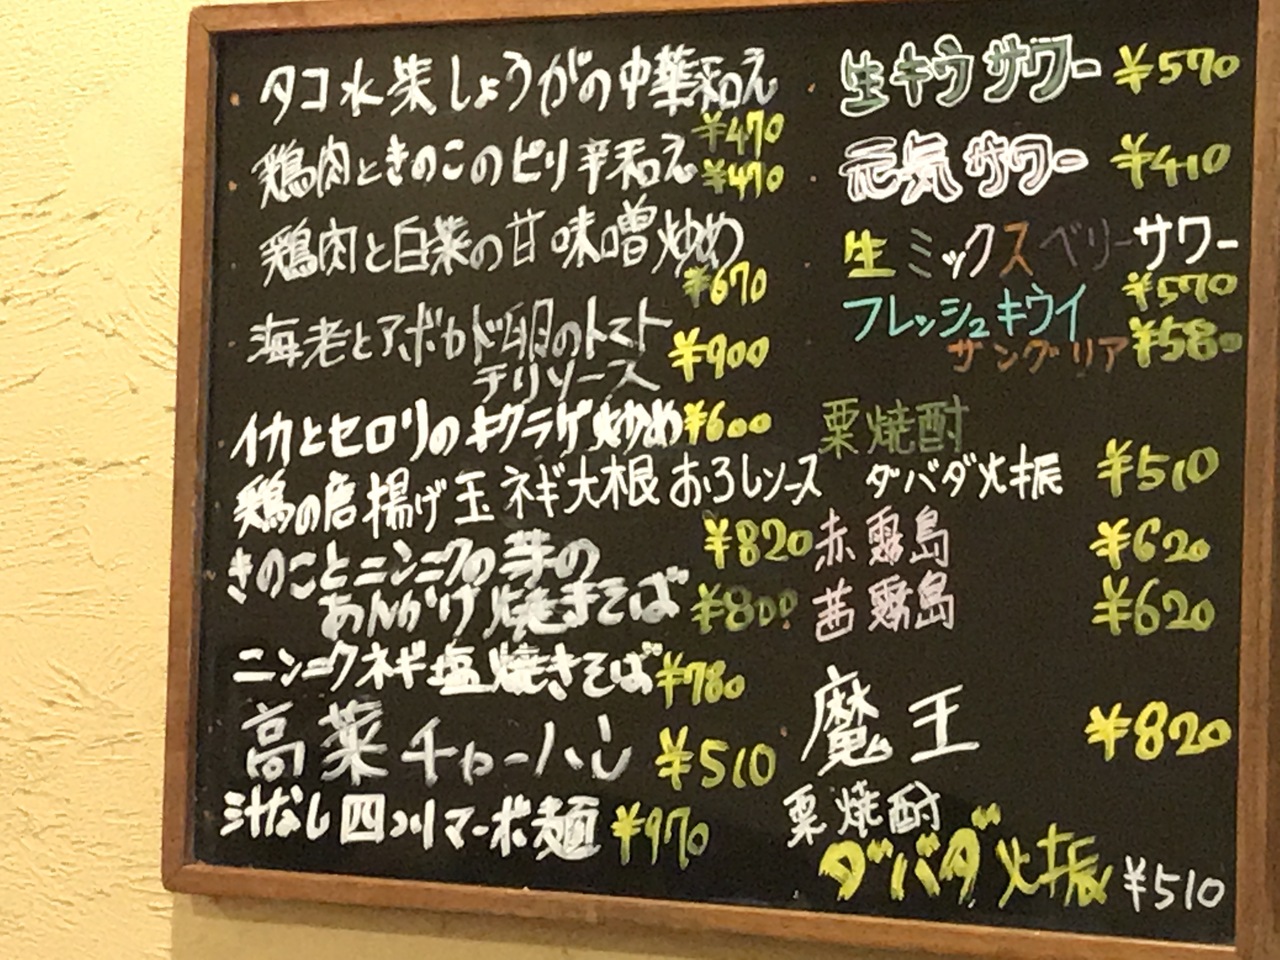 タコ水菜しょうがの中華和え
¥470
鶏肉ときのこのピリ辛和え ¥470
鶏肉と白菜の甘味噌炒め
¥670
海老とアボカド卵のトマト
チリソース ¥900
イカとセロリのキクラゲ炒め ¥600
鶏の唐揚げ玉ネギ大根おろしソース
¥820
きのことニンニクの芽の
あんかけ焼きそば ¥800
ニンニクネギ塩焼きそば ¥780
高菜チャーハン ¥510
汁なし四川マーボ麺 ¥970
生キウイサワー ¥570
元気サワー ¥410
生ミックスベリーサワー
¥570
フレッシュキウイ
サングリア ¥580
栗焼酎
ダバダ火振 ¥510
赤霧島 ¥620
茜霧島 ¥620
魔王 ¥820
栗焼酎
ダバダ火振 ¥510